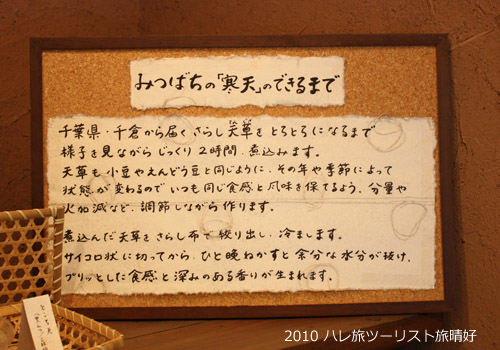 みつばちの「寒天」のできるまで
千葉県・千倉から届くさらし天草をとろとろになるまで
様子を見ながらじっくり2時間、煮込みます。
天草も小豆やえんどう豆と同じように、その年や季節によって
状態が変わるのでいつも同じ食感と風味を保てるよう、分量や
火加減など、調節しながら作ります。
煮込んだ天草をさらし布で絞り出し、冷まします。
サイコロ状に切ってから、ひと晩ねかすと余分な水分が抜け、
プリッとした食感と深みのある香りが生まれます。
2010 ハレ旅ツーリスト旅晴好